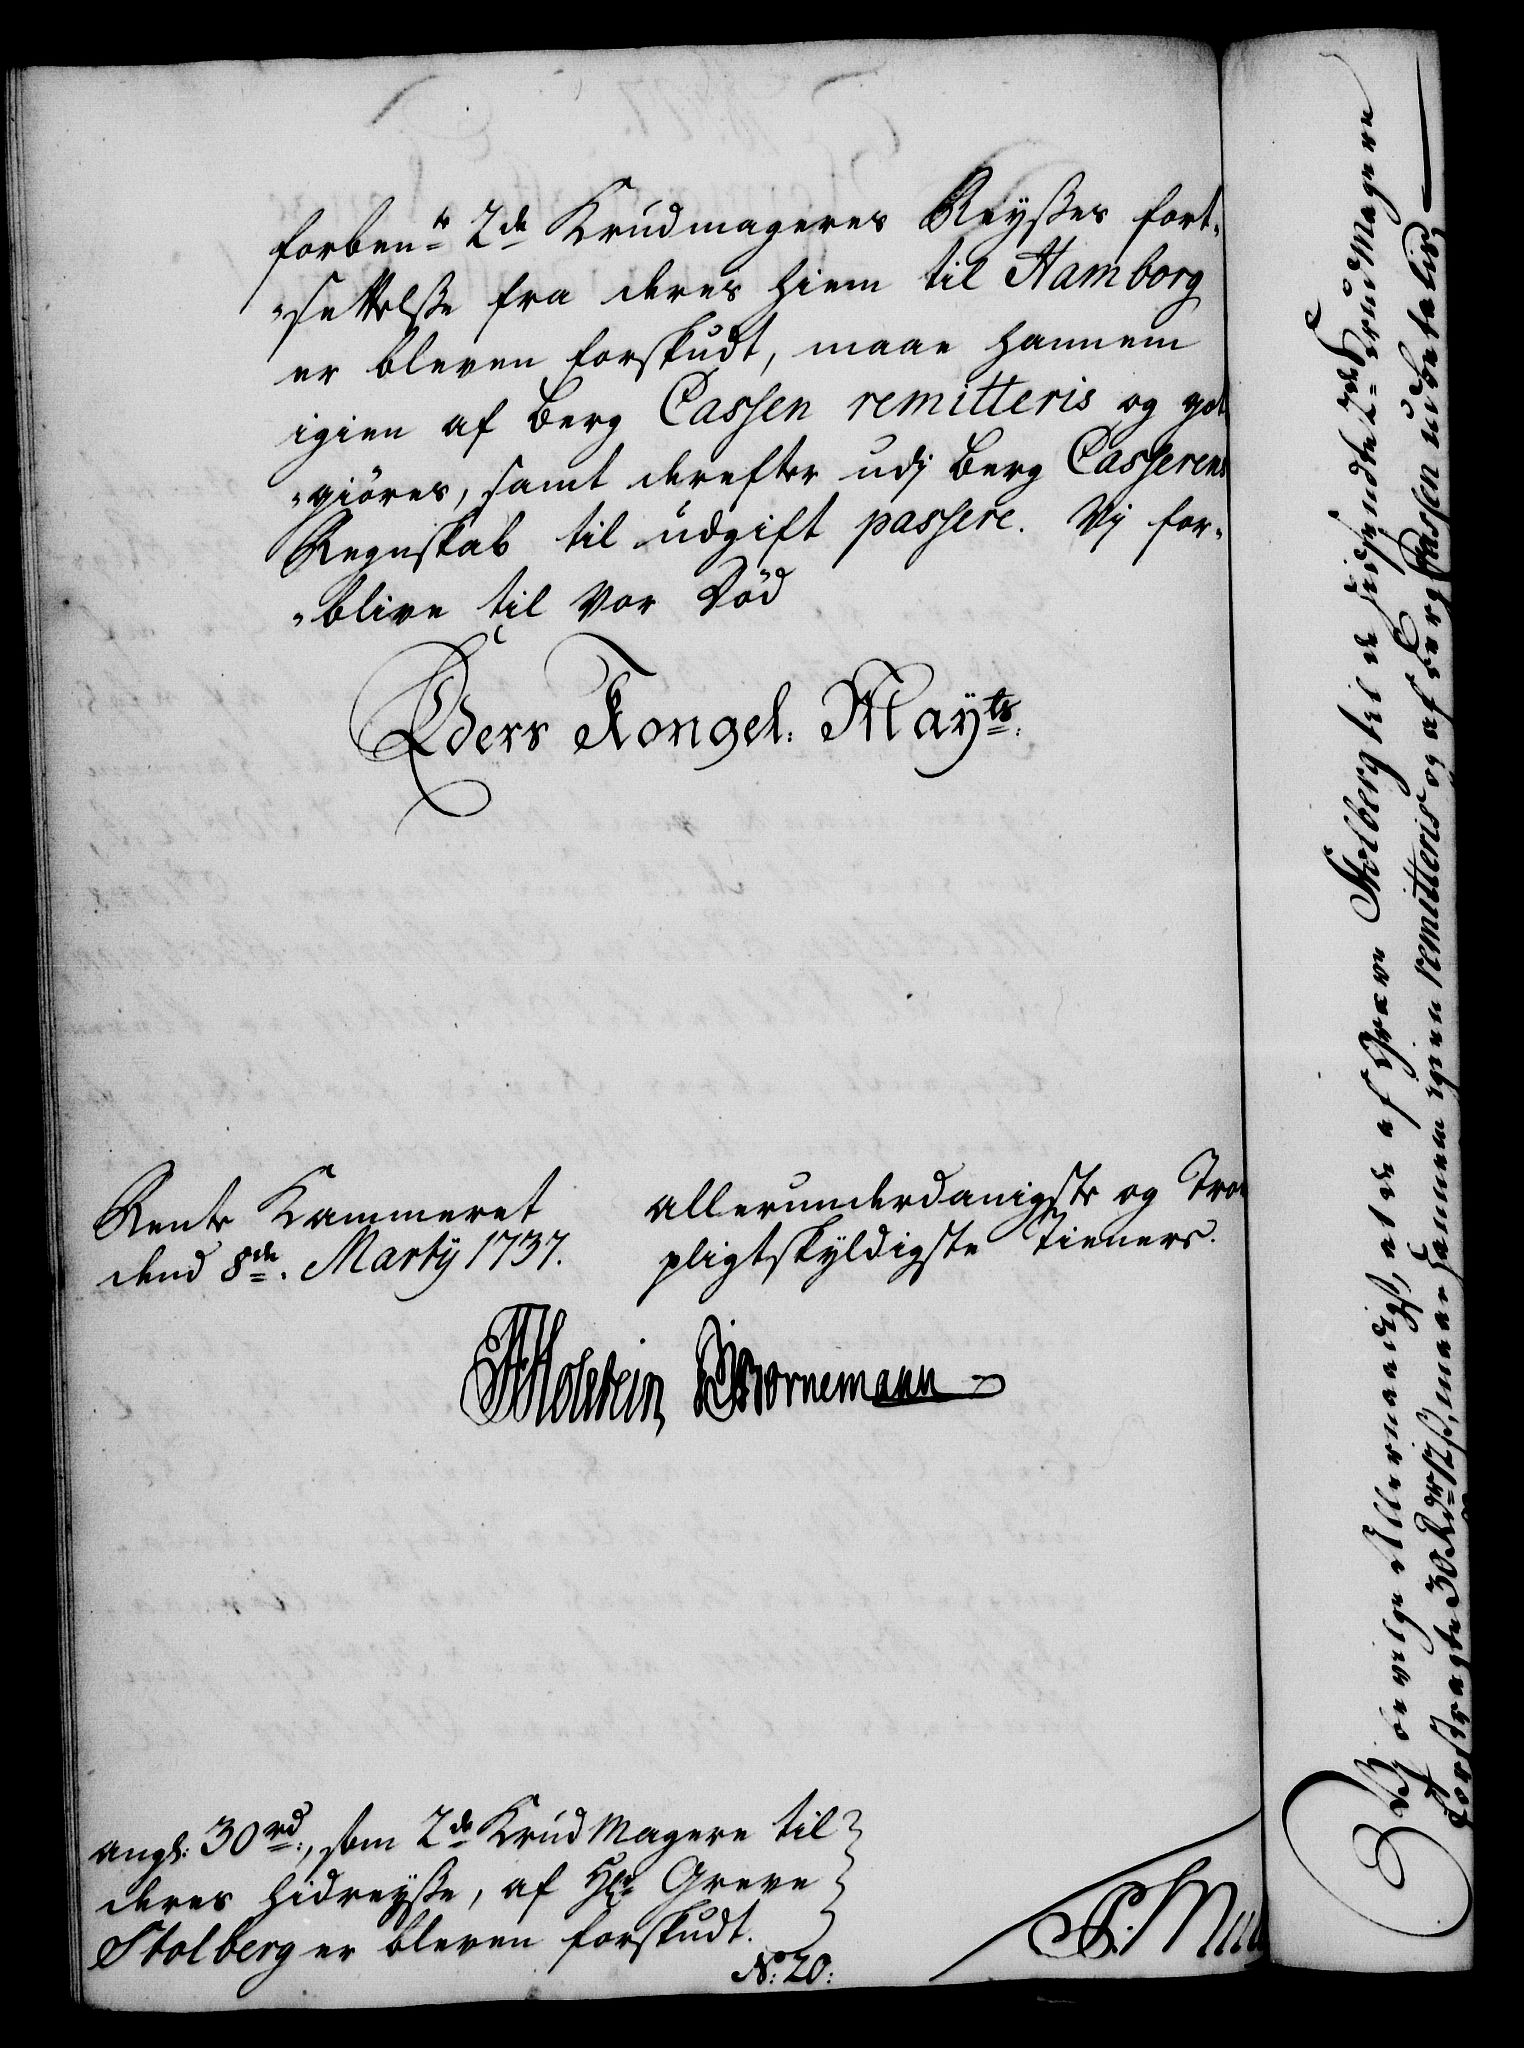 forbente 2de Krudmageres Reyßes fort-
-settelße fra deres Hiem til Hamborg
er bleven forskudt, maae hannem
igien af Berg Cassen remitteris og got
-giöres, samt derefter udj Berg Casserens
Regnskab til udgift passere. Vij for-
-blive til vor Död
Eders Kongel: Mayts:
Rente Kammeret
dend 8de. Marty 1737.
allerunderdanigste og Troe
pligtskyldigste Tienere.
Holstein JBornemann
ang: 30 rd:, som 2de Krudmagere til
deres hidreyße, af Hr Greve
Stolberg er bleven forskudt.
No: 20:
P: Mul
Vj bevilge Allernaadigst, at de af Græve Stolberg til de hidsendte 2de Krudmagere
forstragte 30 Rdr 12 ß, maae Hannem igien remitteris og af Berg Cassen udbetalis